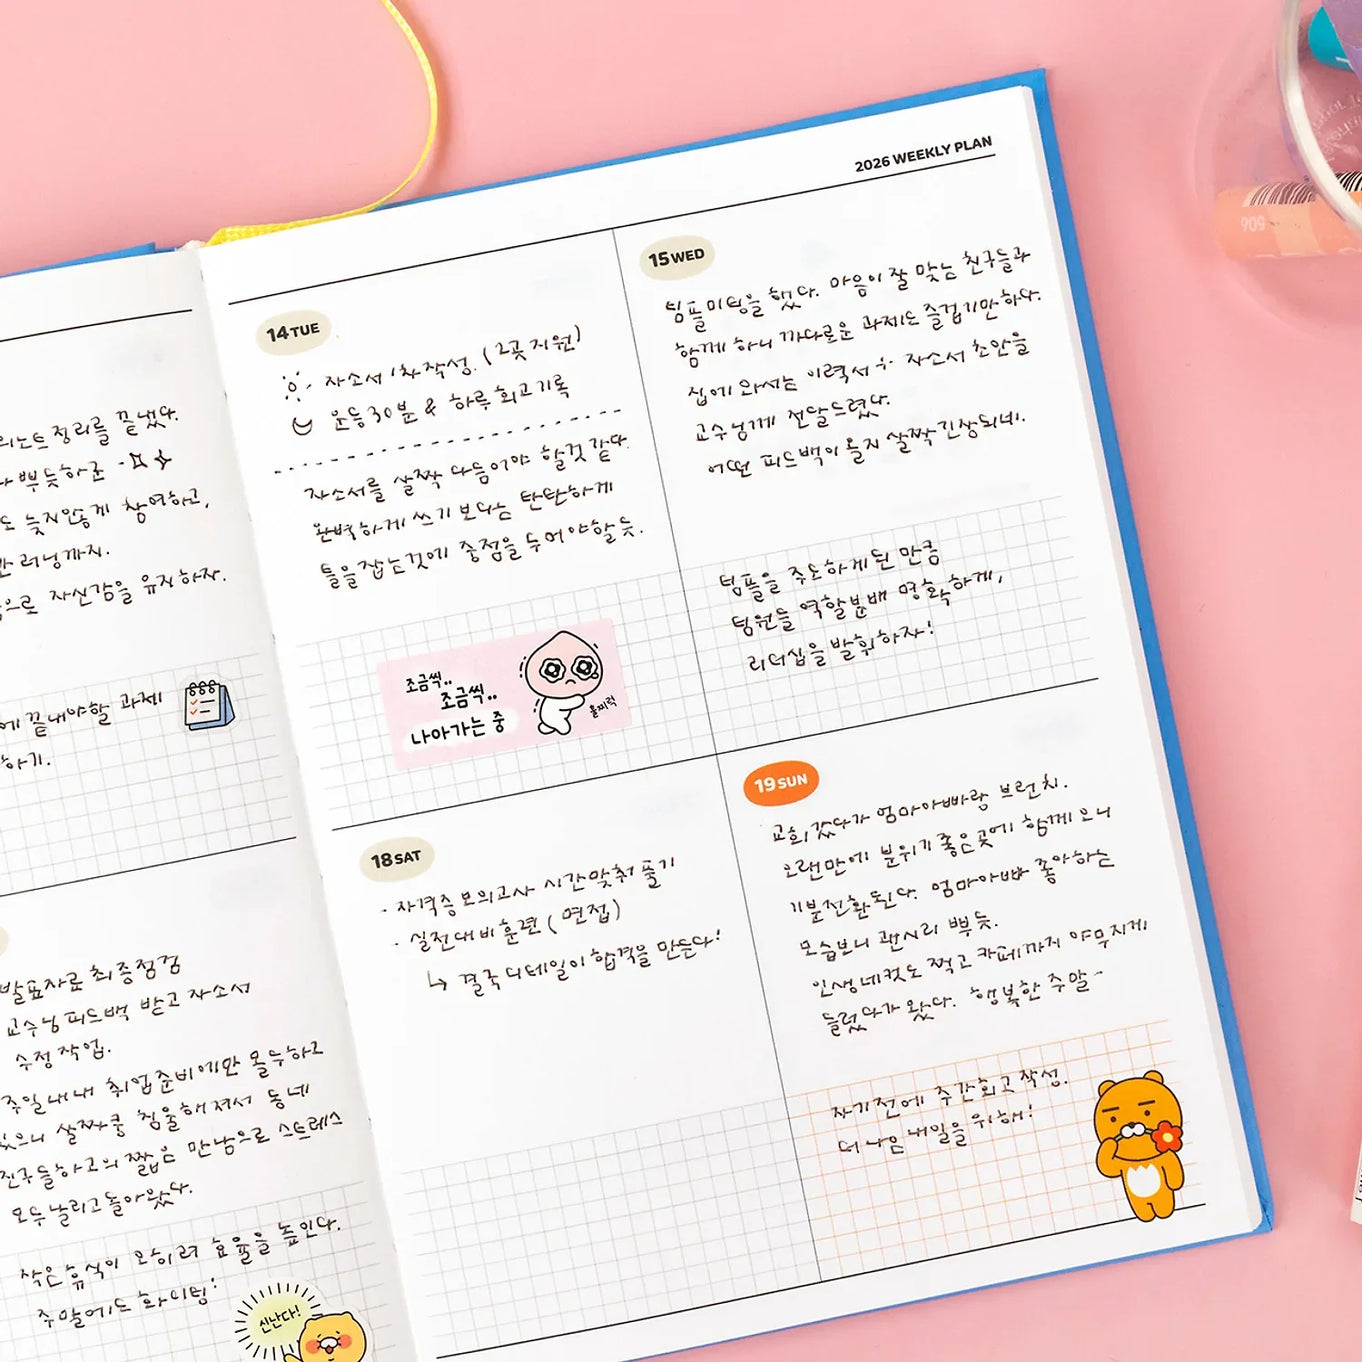 2026 WEEKLY PLAN
의노트정리를 끝냈다.
뿌듯하군
도 늦지않게 참여하고,
러닝까지.
으로 자신감을 유지하자.
에 끝내야할 과제
하기.
발표자료 최종점검
교수님피드백 받고 자소서
수정작업.
주일내내 취업준비에만 몰두하고
있으니 살짝쿵 침울해져서 동네
친구들하고의 짧은 만남으로 스트레스
모두날리고돌아왔다.
작은휴식이 오히려 효율을 높인다.
주말에도 화이팅!
신난다!
14 TUE
자소서 1차작성. (2곳지원)
운동30분 & 하루 회고기록
자소서를 살짝 다듬어야 할것 같다.
완벽하게 쓰기 보다는 탄탄하게
틀을잡는것에 중점을 두어야할듯.
조금씩..
조금씩..
나아가는 중
울찌럭
15 WED
팀플미팅을 했다. 마음이 잘 맞는 친구들과
함께 하니 까다로운 과제도 즐겁기만하다.
집에 와서는 이력서 수정 자소서 초안을
교수님께 전달드렸다.
어떤 피드백이 올지 살짝긴장되네.
팀플을 주도하게된 만큼
팀원들 역할분배 명확하게,
리더십을 발휘하자!
18 SAT
· 자격증모의고사 시간맞춰풀기
· 실전대비훈련 (면접)
↳ 결국 디테일이 합격을 만든다!
19 SUN
교회갔다가 엄마아빠랑 브런치.
오랜만에 분위기 좋은곳에 함께 오니
기분전환된다. 엄마아빠 좋아하는
모습보니 괜시리 뿌듯.
인생네컷도 찍고 카페까지 야무지게
들렀다가 왔다. 행복한 주말~
자기전에 주간회고작성.
더 나은 내일을 위해!
506